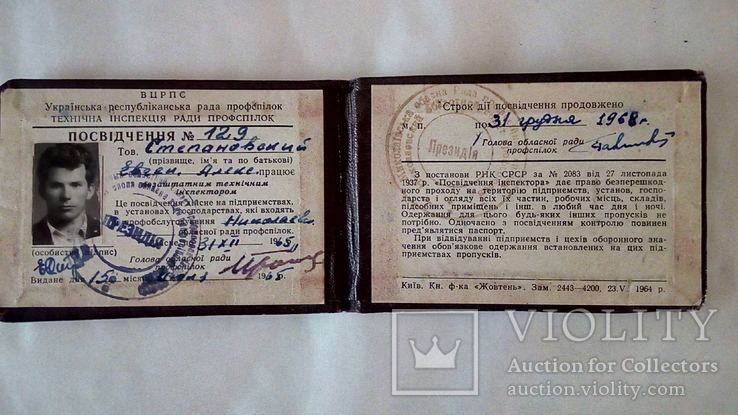 ВЦРПС
Українська республіканська рада профспілок
ТЕХНІЧНА ІНСПЕКЦІЯ РАДИ ПРОФСПІЛОК
ПОСВІДЧЕННЯ № 129
Тов. Степановский
(прізвище, ім'я та по батькові)
Евген. Алекс. працює
позаштатним технічним
інспектором
Це посвідчення дійсне на підприємствах,
в установах
і господарствах, які входять
профобслуговування Николаевс.
обласної ради профспілок.
31/XII 1965
Голова обласної ради
профспілок
(особистий підпис)
Видане дня 15 місяця 1965
Строк дії посвідчення продовжено
м. п. по 31 грудня 1968 г.
Голова обласної ради
профспілок
Президія
З постанови РНК СРСР за № 2083 від 27 листопада
1937 р. „Посвідчення інспектора» дає право безперешкодного проходу на територію підприємств, установ, господарств і огляду всіх їх частин, робочих місць, складів,
підсобних приміщень і інш. в любий час дня і ночі.
Одержання для цього будь-яких інших пропусків не
потрібно. Одночасно з посвідченням контролю повинен
пред'являтися паспорт.
При відвідуванні підприємств і цехів оборонного значення обов'язкове одержання встановлених на цих підприємствах пропусків.
Київ. Кн. ф-ка «Жовтень». Зам. 2443—4200, 23.V 1964 р.
VIOLITY
Auction for Collectors
auction.violity.com